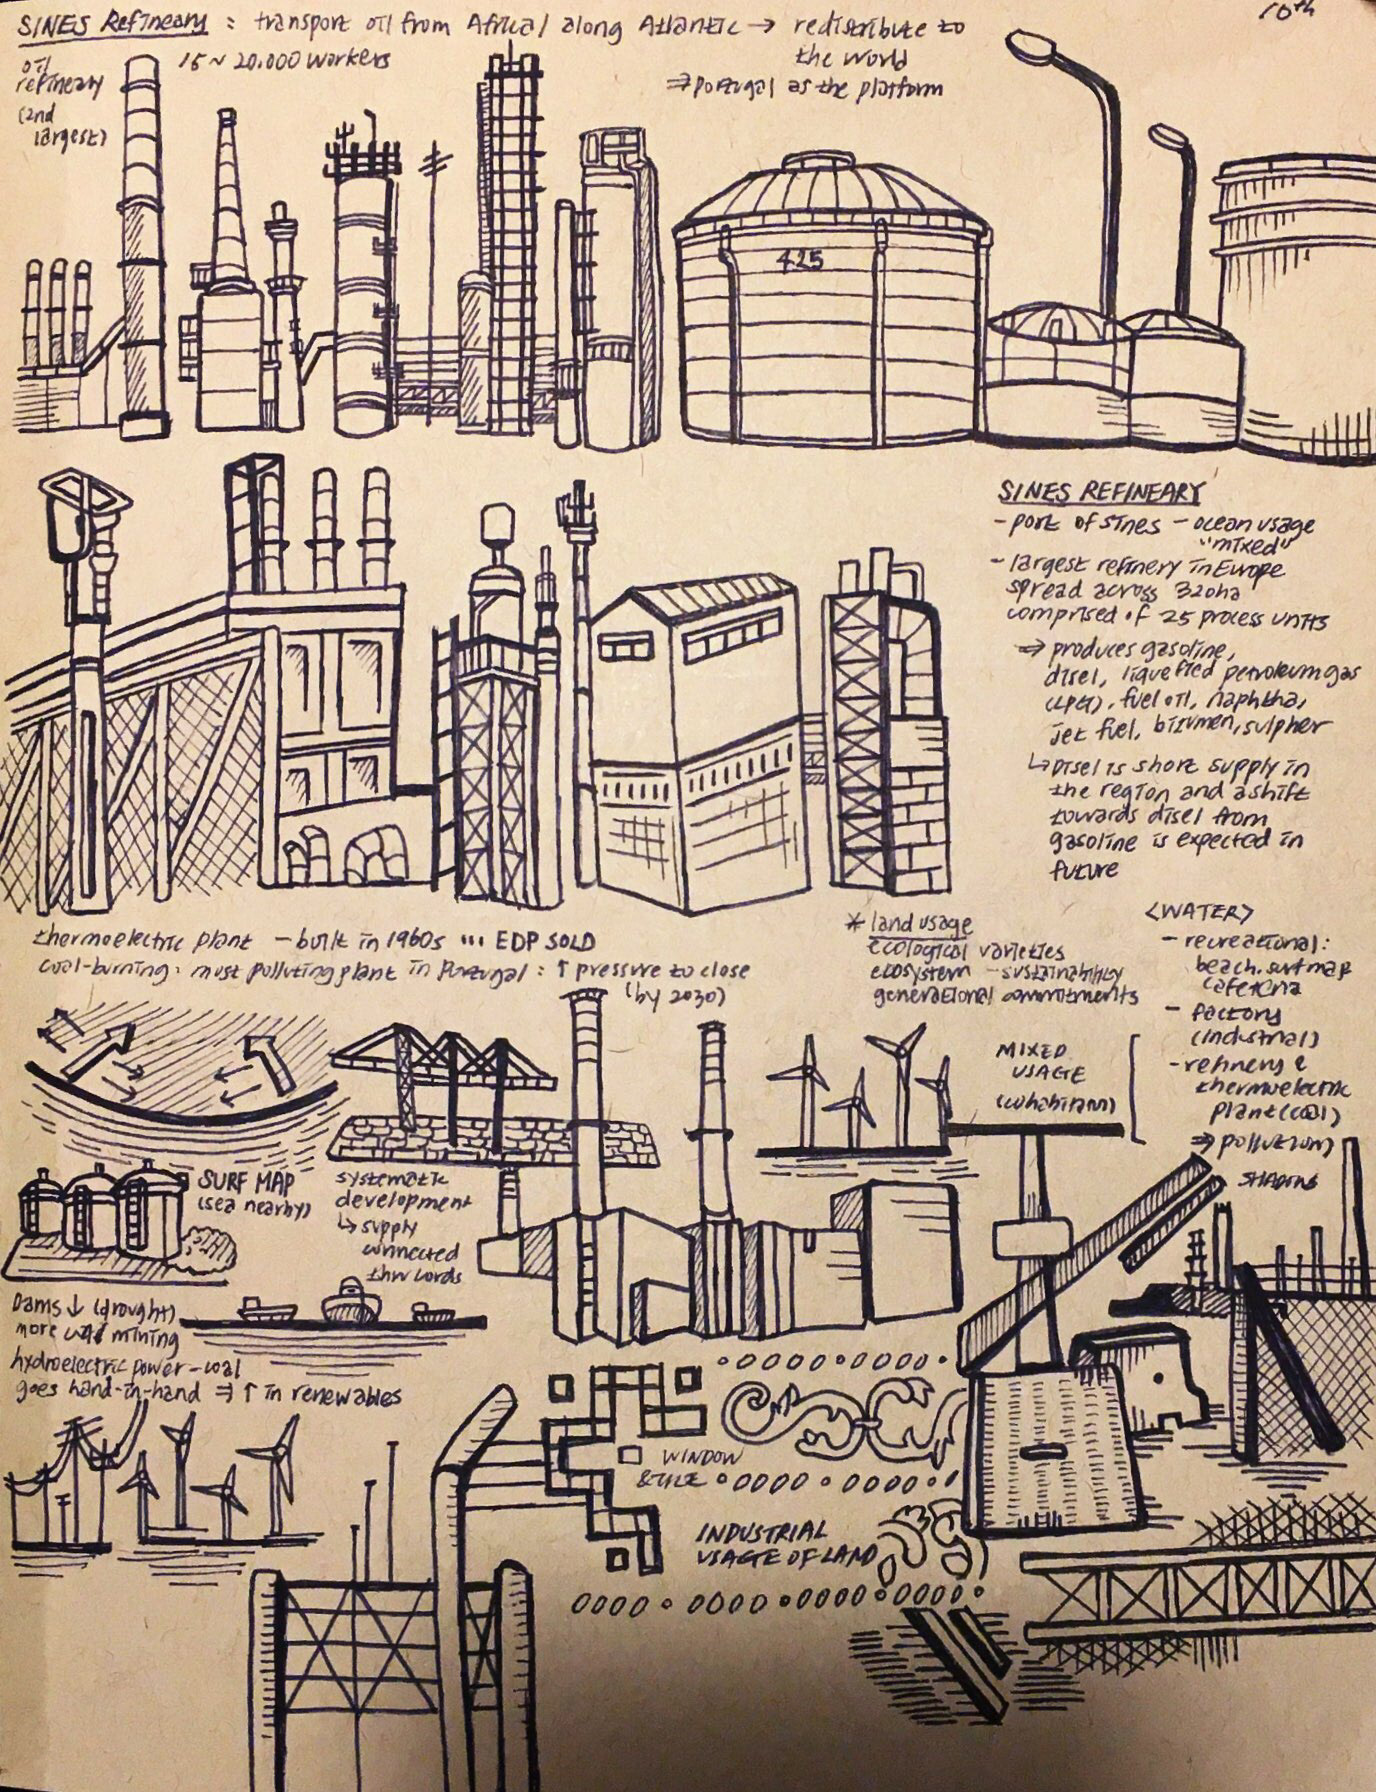 10th
SINES Refineary : transport oil from Africa/ along Atlantic → redistribute to
the world
⇒ Portugal as the platform
15 ~ 20.000 workers
oil
refineary
(2nd
largest)
425
SINES REFINEARY
- port of sines - ocean usage
"mixed"
- largest refinery in Europe
spread across 320ha
comprised of 25 process units
⇒ produces gasoline,
disel, liquefied petroleum gas
(LPG), fuel oil, naphtha,
jet fuel, bitumen, sulpher
↳ Disel is short supply in
the region and a shift
towards disel from
gasoline is expected in
future
thermoelectric plant - built in 1960s ... EDP SOLD
coal-burning: most polluting plant in Portugal : ↑ pressure to close
(by 2030)
* land usage
ecological varieties
ecosystem - sustainability
generational commitments
<WATER>
- recreational:
beach. surf map
cafeteria
- factory
(industrial)
- refinery &
thermoelectric
plant (coal)
⇒ pollution)
MIXED
USAGE
SHADING
SURF MAP
(sea nearby)
systematic
development
↳ supply
connected
Dams ↓ (drought)
more coal mining
hydroelectric power - coal
goes hand-in-hand ⇒ ↑ in renewables
WINDOW
& TILE
INDUSTRIAL
USAGE OF LAND